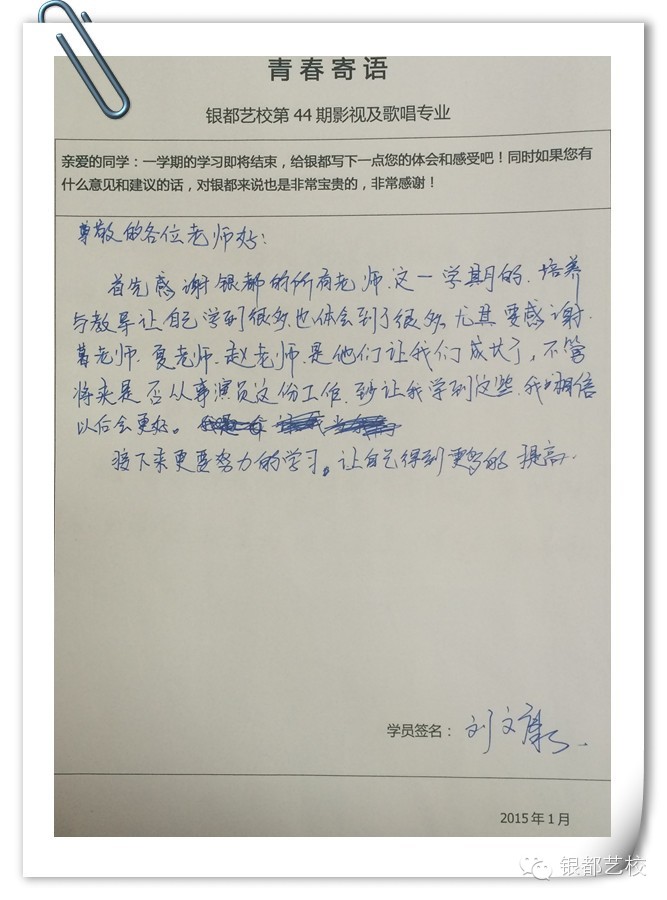 青春寄语
银都艺校第44期影视及歌唱专业
亲爱的同学：一学期的学习即将结束，给银都写下一点您的体会和感受吧！同时如果您有
什么意见和建议的话，对银都来说也是非常宝贵的，非常感谢！
尊敬的各位老师好：
首先感谢银都的所有老师.这一学期的.培养
与教导让自己学到很多.也体会到了很多.尤其要感谢.
葛老师.夏老师.赵老师.是他们让我们成长了，不管
将来是否从事演员这份工作.让我学到这些.我相信
以后会更好。
接下来更要努力的学习。让自己得到更多的提高.
学员签名：刘文康
2015年1月
银都艺校